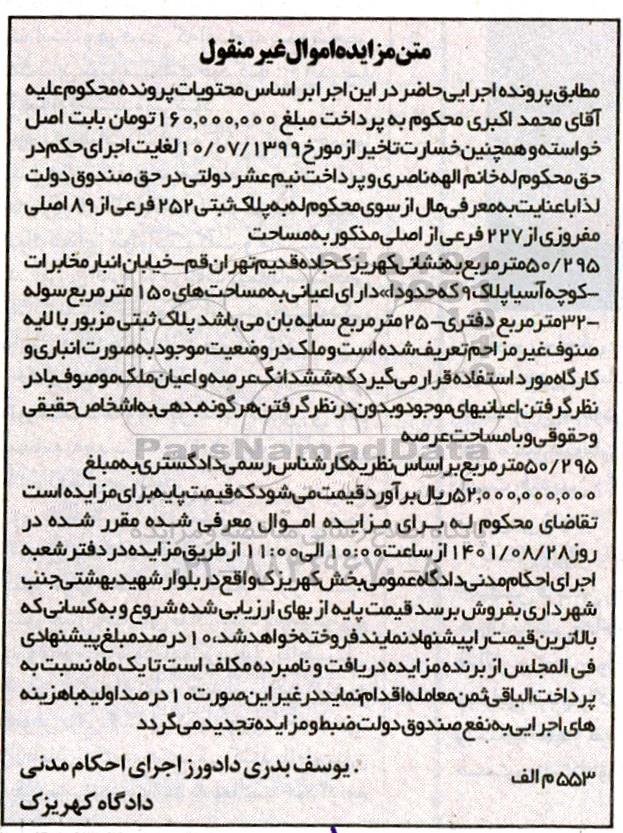 متن مزایده اموال غیر منقول
مطابق پرونده اجرایی حاضر در این اجرا بر اساس محتویات پرونده محکوم علیه
آقای محمد اکبری محکوم به پرداخت مبلغ ۱۶۰,۰۰۰,۰۰۰ تومان بابت اصل
خواسته و همچنین خسارت تاخیر از مورخ ۱۰/۰۷/۱۳۹۹ لغایت اجرای حکم در
حق محکوم له خانم الهه ناصری و پرداخت نیم عشر دولتی در حق صندوق دولت
لذا با عنایت به معرفی مال از سوی محکوم له به پلاک ثبتی ۲۵۲ فرعی از ۸۹ اصلی
مفروزی از ۲۲۷ فرعی از اصلی مذکور به مساحت
۵۰/۲۹۵ متر مربع به نشانی کهریزک جاده قدیم تهران قم-خیابان انبار مخابرات
-کوچه آسیا پلاک ۹ که حدودا» دارای اعیانی به مساحت های ۱۵۰ متر مربع سوله
-۳۲ متر مربع دفتری-۲۵ متر مربع سایه بان می باشد پلاک ثبتی مزبور با لایه
صنوف غیر مزاحم تعریف شده است و ملک در وضعیت موجود به صورت انباری و
کارگاه مورد استفاده قرار می گیرد که ششدانگ عرصه و اعیان ملک موصوف با در
نظر گرفتن اعیانیهای موجود و بدون در نظر گرفتن هر گونه بدهی به اشخاص حقیقی
و حقوقی و با مساحت عرصه
۵۰/۲۹۵ متر مربع بر اساس نظریه کارشناس رسمی دادگستری به مبلغ
۵۲,۰۰۰,۰۰۰,۰۰۰ ریال برآورد قیمت می شود که قیمت پایه برای مزایده است
تقاضای محکوم له برای مزایده اموال معرفی شده مقرر شده در
روز ۱۴۰۱/۰۸/۲۸ از ساعت ۱۰:۰۰ الی ۱۱:۰۰ از طریق مزایده در دفتر شعبه
اجرای احکام مدنی دادگاه عمومی بخش کهریزک واقع در بلوار شهید بهشتی جنب
شهرداری بفروش برسد قیمت پایه از بهای ارزیابی شده شروع و به کسانی که
بالاترین قیمت را پیشنهاد نمایند فروخته خواهد شد، ۱۰ درصد مبلغ پیشنهادی
فی المجلس از برنده مزایده دریافت و نامبرده مکلف است تا یک ماه نسبت به
پرداخت الباقی ثمن معامله اقدام نماید در غیر این صورت ۱۰ درصد اولیه با هزینه
های اجرایی به نفع صندوق دولت ضبط و مزایده تجدید می گردد
۵۵۳ م الف
. یوسف بدری دادورز اجرای احکام مدنی
دادگاه کهریزک
ParsNamadData